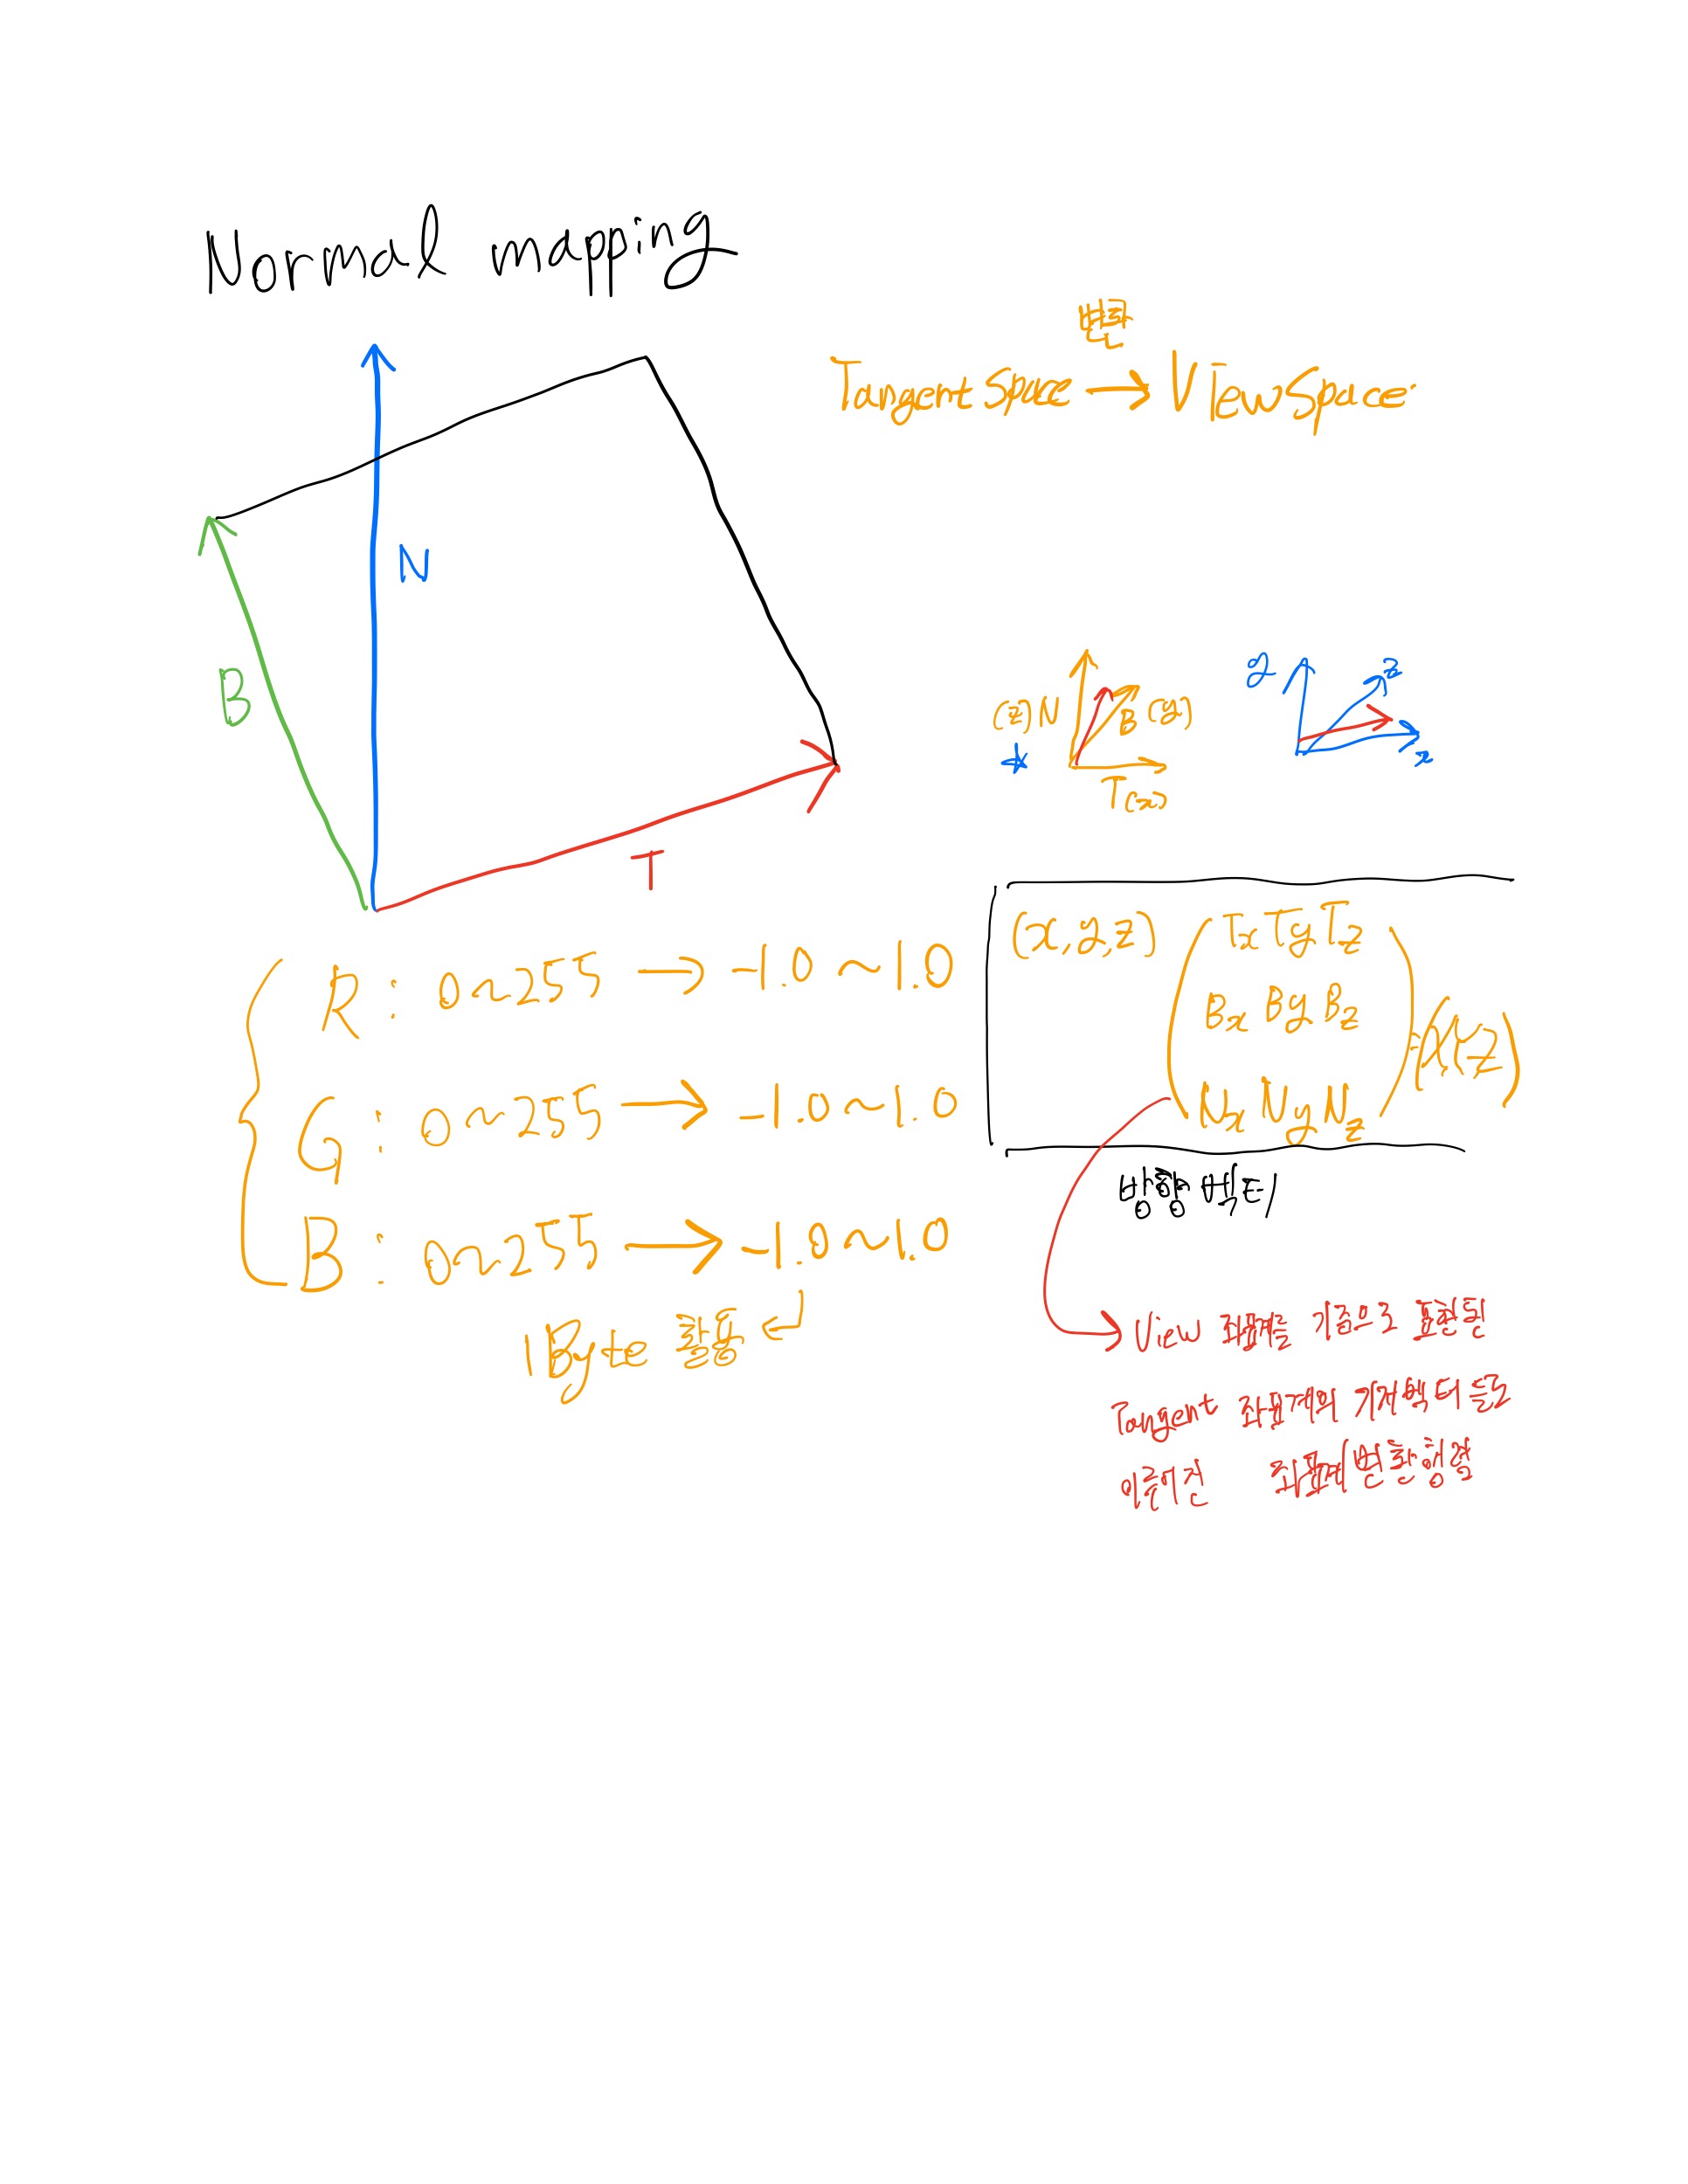 Normal mapping
변환
Tangent Space → View Space
N
B
T
(z) N
B (y)
T (x)
y
z
x
R : 0~255 → -1.0 ~ 1.0
G : 0~255 → -1.0 ~ 1.0
B : 0~255 → -1.0 ~ 1.0
1Byte 활용
(x, y, z)
Tx Ty Tz
Bx By Bz
Nx Ny Nz
= (X Y Z)
방향 벡터
View 좌표계를 기준으로 표현된
Tangent 좌표계의 기저벡터들로
이루어진 좌표계 변환행렬